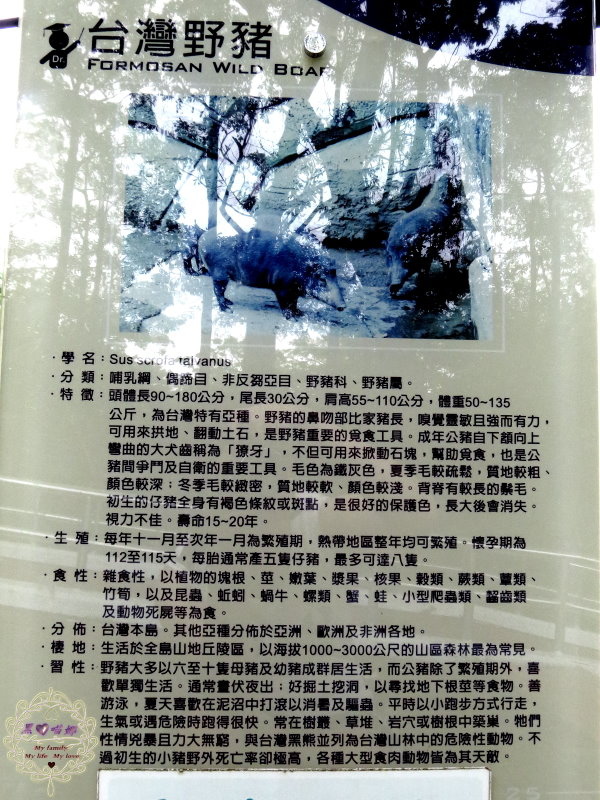 台灣野豬
FORMOSAN WILD BOAR
Dr.
·學名：Sus scrofa taivanus
·分類：哺乳綱、偶蹄目、非反芻亞目、野豬科、野豬屬。
·特徵：頭體長90~180公分，尾長30公分，肩高55~110公分，體重50~135
公斤，為台灣特有亞種。野豬的鼻吻部比家豬長，嗅覺靈敏且強而有力，
可用來拱地、翻動土石，是野豬重要的覓食工具。成年公豬自下顎向上
彎曲的大犬齒稱為「獠牙」，不但可用來掀動石塊，幫助覓食，也是公
豬間爭鬥及自衛的重要工具。毛色為鐵灰色，夏季毛較疏鬆，質地較粗、
顏色較深；冬季毛較緻密，質地較軟、顏色較淺。背脊有較長的鬃毛。
初生的仔豬全身有褐色條紋或斑點，是很好的保護色，長大後會消失。
視力不佳。壽命15~20年。
·生殖：每年十一月至次年一月為繁殖期，熱帶地區整年均可繁殖。懷孕期為
112至115天，每胎通常產五隻仔豬，最多可達八隻。
·食性：雜食性，以植物的塊根、莖、嫩葉、漿果、核果、穀類、蕨類、蕈類、
竹筍，以及昆蟲、蚯蚓、蝸牛、螺類、蟹、蛙、小型爬蟲類、齧齒類
及動物死屍等為食。
·分佈：台灣本島。其他亞種分佈於亞洲、歐洲及非洲各地。
·棲地：生活於全島山地丘陵區，以海拔1000~3000公尺的山區森林最為常見。
·習性：野豬大多以六至十隻母豬及幼豬成群居生活，而公豬除了繁殖期外，喜
歡單獨生活。通常晝伏夜出；好掘土挖洞，以尋找地下根莖等食物。善
游泳，夏天喜歡在泥沼中打滾以消暑及驅蟲。平時以小跑步方式行走，
生氣或遇危險時跑得很快。常在樹叢、草堆、岩穴或樹根中築巢。牠們
性情兇暴且力大無窮，與台灣黑熊並列為台灣山林中的危險性動物。不
過初生的小豬野外死亡率卻極高，各種大型食肉動物皆為其天敵。
My family
My life My love